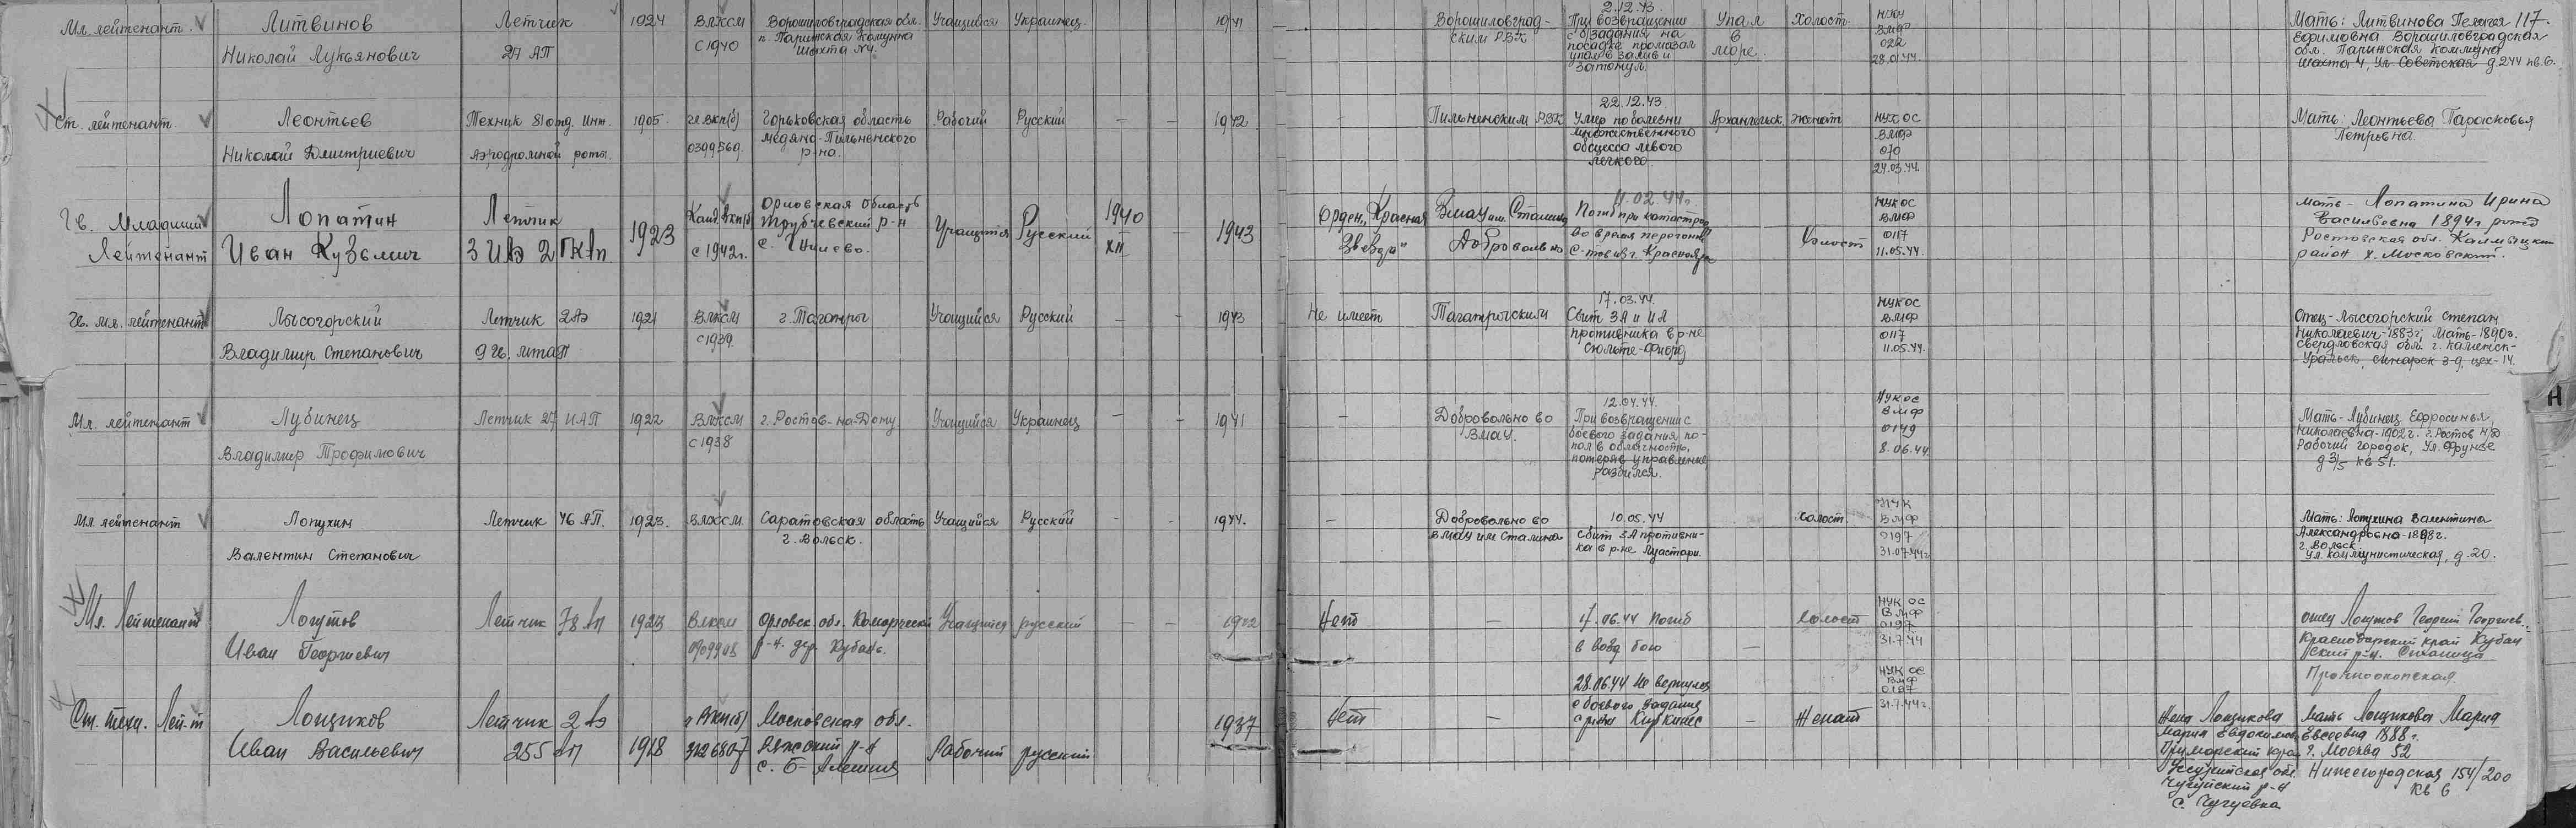 Мл. лейтенант. Литвинов Летчик 1924 ВЛКСМ Ворошиловградская обл. Учащийся Украинец. 1941 Ворошиловград- 2.12.43. Упал Холост НКУ Мать: Литвинова Пелагея 117.
Николай Лукьянович 27 АП с 1940 п. Парижская Коммуна ским РВК При возвращении в ВМФ Ефимовна Ворошиловградская
шахта №4. с б/задания на море. 022 обл. Парижская Коммуна
посадке промазал 28.01.44. шахта 4, ул. Советская д.244 кв.6.
упал в залив и
затонул.
Ст. лейтенант. Леонтьев Техник 81 отд. инж. 1905. чл ВКП(б) Горьковская область Рабочий Русский — — 1942 - Пильненским РВК 22.12.43. Архангельск женат НУК ОС Мать: Леонтьева Парасковья
Николай Дмитриевич аэродромной роты. 0399569. Медяно-Пильненского Умер по болезни ВМФ Петровна.
р-на. множественного 070
абсцесса левого 24.03.44.
легкого.
Гв. Младший Лопатин Летчик 1923 Канд. ВКП(б) Орловская область Учащийся Русский 1940 — 1943 Орден „Красная ВМАУ им. Сталина 11.02.44г. Холост НУК ОС Мать - Лопатина Ирина
Лейтенант Иван Кузьмич 3 ИАЭ 2 ГКАП с 1942г. Трубчевский р-н XII Звезда" Добровольно Погиб при катастрофе ВМФ Васильевна 1894г. рожд
во время перегонки 0117 Ростовская обл. Калмыцкий
с-тов из г. Красноярск 11.05.44. район х. Московский.
Гв. мл. лейтенант Лысогорский Летчик 2АЭ 1921 ВЛКСМ г. Таганрог Учащийся Русский — - 1943 Не имеет Таганрогским 17.03.44. НУК ОС Отец - Лысогорский Степан
Владимир Степанович 9 Гв. МТАП с 1939. Сбит ЗА и ИА ВМФ Николаевич-1883г; Мать-1890г.
противника в р-не 0117 Свердловская обл. г. Каменск-
Сюльте-Фиорд 11.05.44. Уральск, Синарск з-д, цех-14.
Мл. лейтенант Лубинец Летчик 27 ИАП 1922 ВЛКСМ г. Ростов-на-Дону. Учащийся Украинец — - 1941 — Добровольно во 12.04.44. НУК ОС Мать - Лубинец Ефросинья
Владимир Трофимович с 1938 ВМАУ. При возвращении с ВМФ Николаевна-1902г. г. Ростов н/Д
боевого задания по- 0149 Рабочий городок, ул. Фрунзе
пал в облачность, 8.06.44 д 3/5 кв 51.
потеряв управление
разбился.
Мл. лейтенант Лопухин Летчик 46 АП. 1923. ВЛКСМ Саратовская область Учащийся Русский - - 1944. — Добровольно во 10.05.44 Холост. НУК Мать: Лопухина Валентина
Валентин Степанович г. Вольск. ВМАУ им Сталина Сбит ЗА противни- ВМФ Александровна-1898г.
ка в р-не Луастари. 0197 г. Вольск
31.07.44г. ул. Коммунистическая, д.20.
Мл. Лейтенант Логутов Летчик 78 АП 1923 ВЛКСМ Орловск. обл. Учащийся русский — — 1942 Нет — 17.06.44 погиб Холост НУК ОС отец Логутов Георгий Георгиев.
Иван Георгиевич р-н. дер. Кубань. в возд бою — ВМФ Краснодарский край Кубан
0197 ский р-н. Станица
31.7.44 Прочноокопская.
Ст. техн. Лей-т Лощиков Летчик 2 АЭ чл ВКП(б) Московская обл. 1937 Нет — 28.06.44 не вернулся — Женат НУК ОС Жена Лощикова Мать Лощикова Мария
Иван Васильевич 255 АП 1918 3126807 Ряжский р-н Рабочий русский с боевого задания ВМФ Мария Евдокимов. Евсеевна 1888г.
с. Б- Алешня с р-на Киркинес 0197 Приморский край г. Москва 52
31.7.44г. Уссурийская обл. Нижегородская 154/200
Чугуевский р-н кв 6
с. Чугуевка